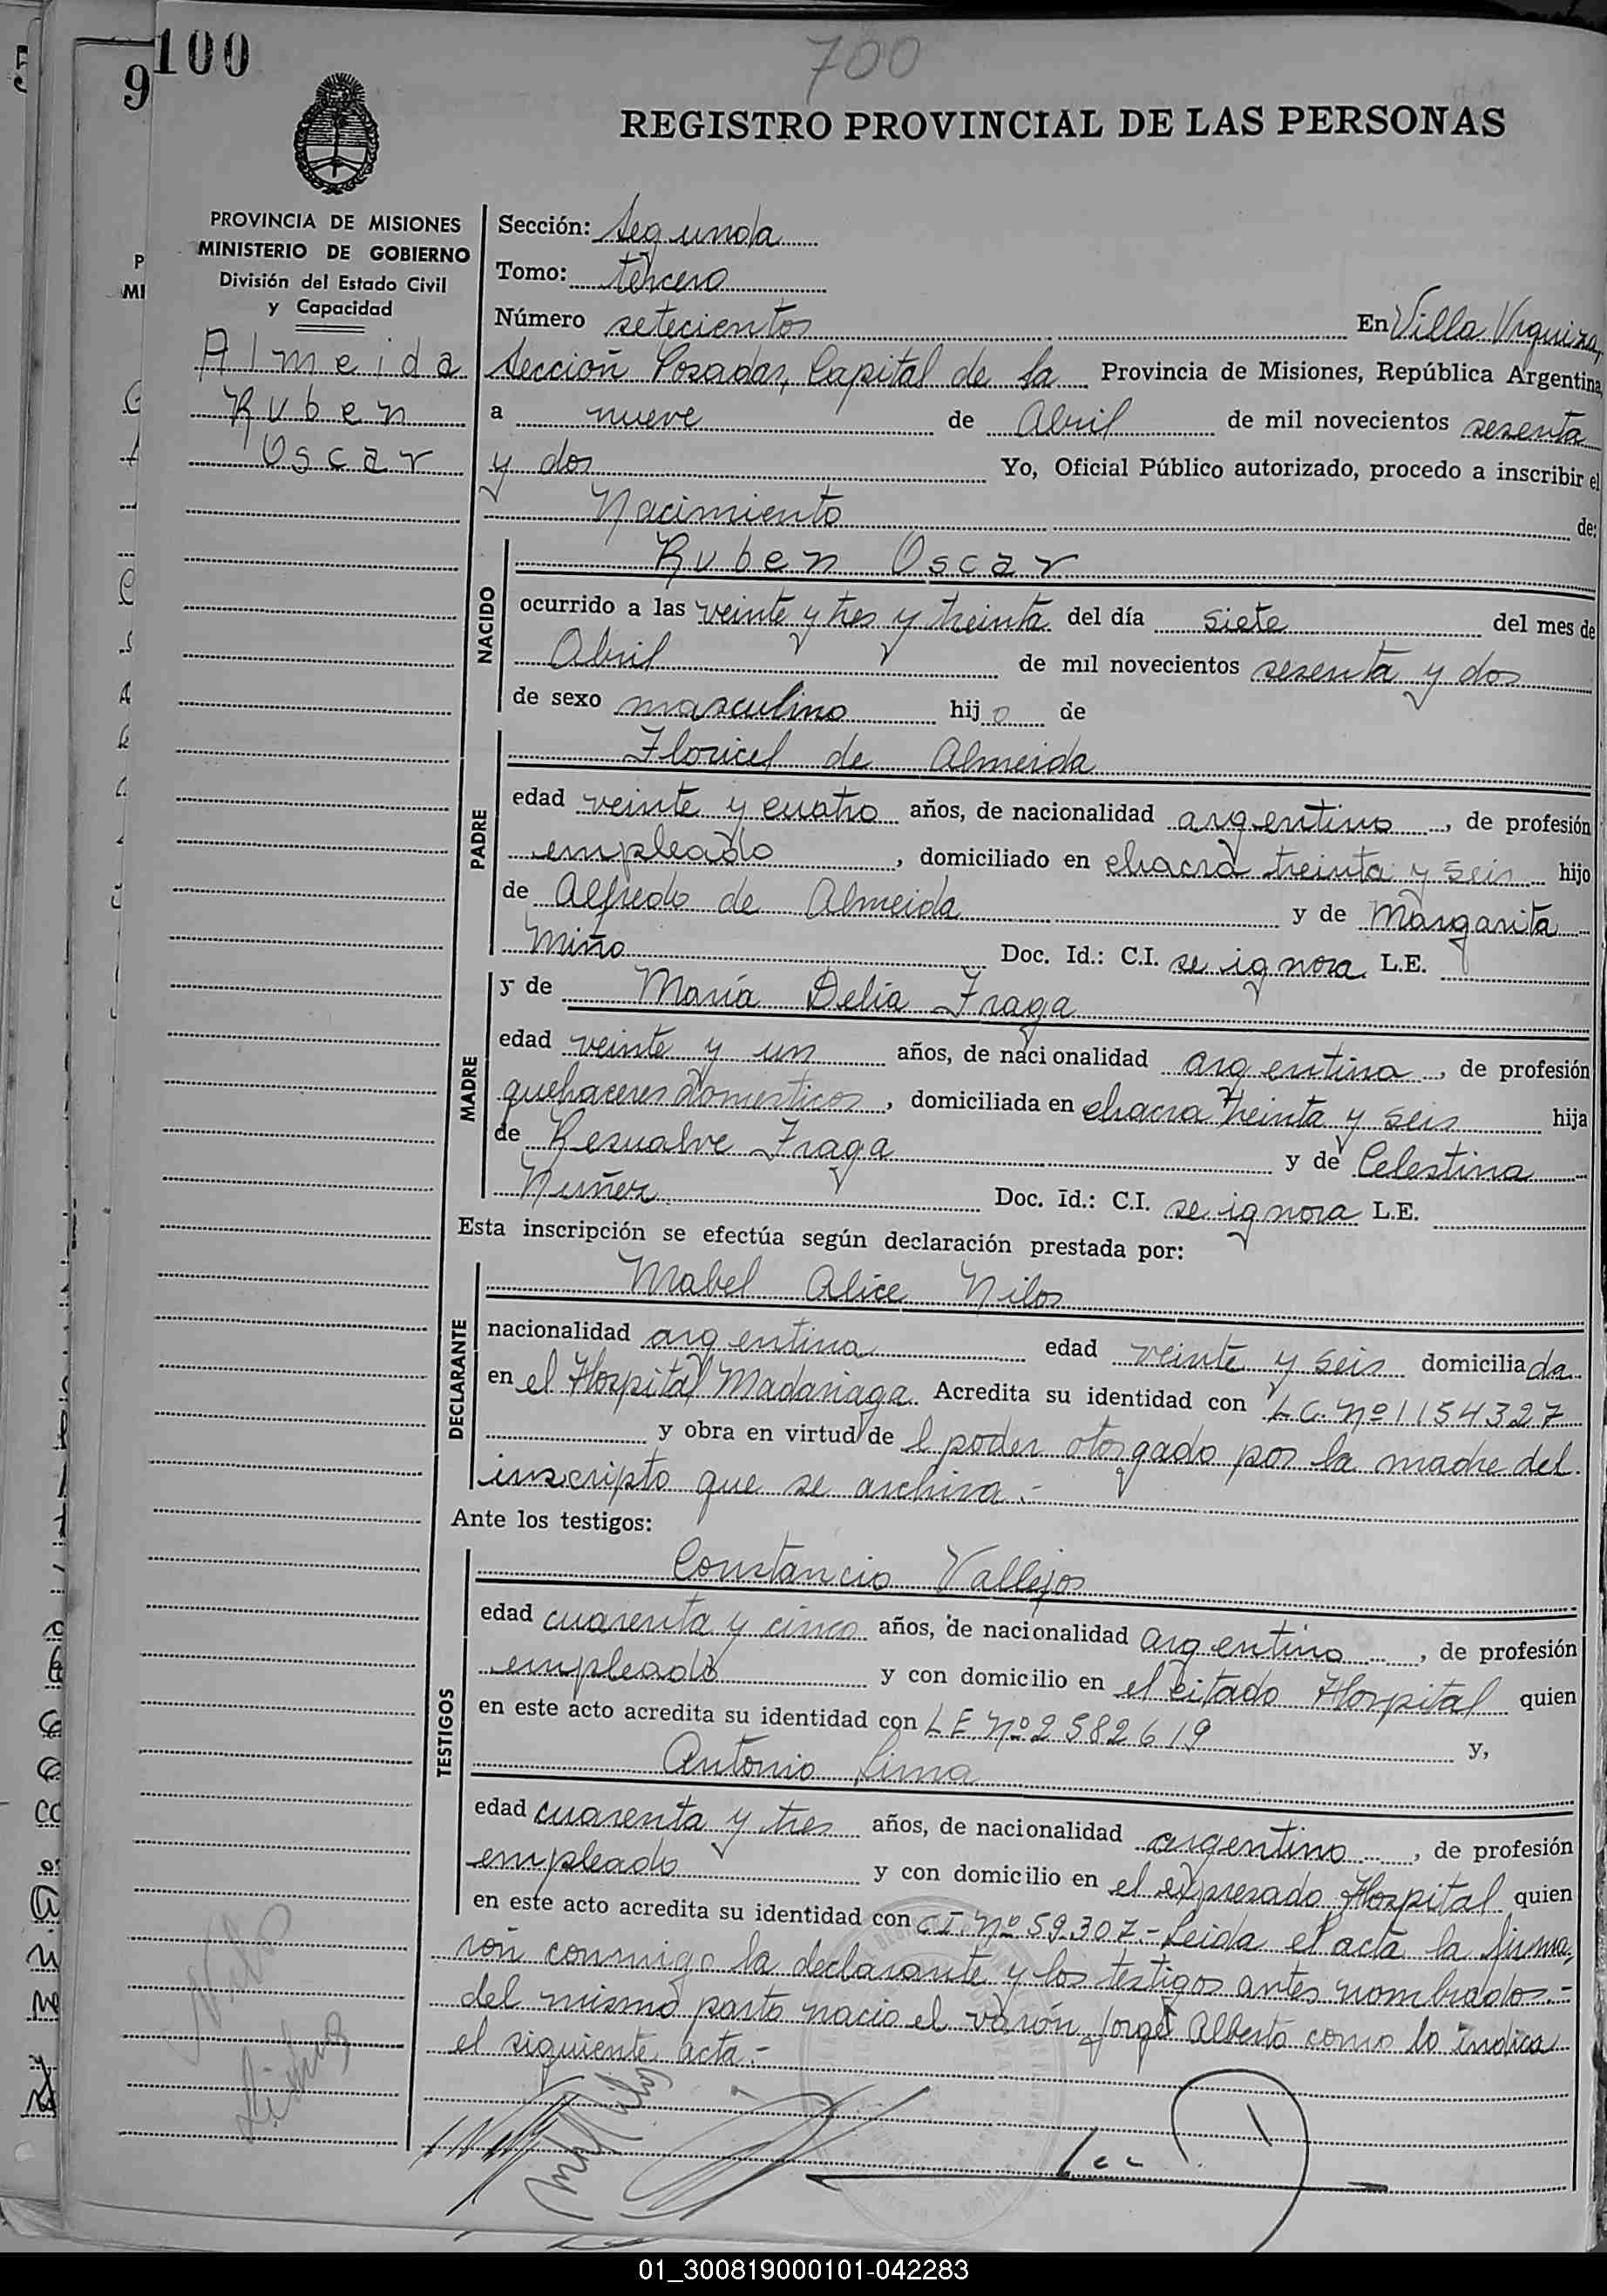 100
700
9
REGISTRO PROVINCIAL DE LAS PERSONAS
PROVINCIA DE MISIONES
MINISTERIO DE GOBIERNO
División del Estado Civil
y Capacidad
Almeida
Ruben
Oscar
Sección: Segunda
Tomo: tercero
Número setecientos En Villa Urquiza,
Sección Posadas, Capital de la Provincia de Misiones, República Argentina,
a nueve de Abril de mil novecientos sesenta
y dos Yo, Oficial Público autorizado, procedo a inscribir el
Nacimiento de:
NACIDO
Ruben Oscar
ocurrido a las veinte y tres y treinta del día siete del mes de
Abril de mil novecientos sesenta y dos
de sexo masculino hijo de
PADRE
Floricel de Almeida
edad veinte y cuatro años, de nacionalidad argentino, de profesión
empleado, domiciliado en chacra treinta y seis hijo
de Alfredo de Almeida y de Margarita
Miño Doc. Id.: C.I. se ignora L.E.
MADRE
y de María Delia Fraga
edad veinte y un años, de nacionalidad argentina, de profesión
quehaceres domesticos, domiciliada en chacra treinta y seis hija
de Resualve Fraga y de Celestina
Nuñez Doc. Id.: C.I. se ignora L.E.
Esta inscripción se efectúa según declaración prestada por:
DECLARANTE
Mabel Alice Nilos
nacionalidad argentina edad veinte y seis domiciliada
en el Hospital Madariaga. Acredita su identidad con L.C. Nº 1154327
y obra en virtud de l poder otorgado por la madre del
inscripto que se archiva.-
Ante los testigos:
TESTIGOS
Constancio Vallejos
edad cuarenta y cinco años, de nacionalidad argentino, de profesión
empleado y con domicilio en el citado Hospital quien
en este acto acredita su identidad con L.E. Nº 2582619 y,
Antonio Lima
edad cuarenta y tres años, de nacionalidad argentino, de profesión
empleado y con domicilio en el expresado Hospital quien
en este acto acredita su identidad con C.I. Nº 59.307.- Leida el acta la firma,
ron conmigo la declarante y los testigos antes nombrados.-
del mismo parto nacio el varón Jorge Alberto como lo indica
el siguiente acta.-
01_300819000101-042283